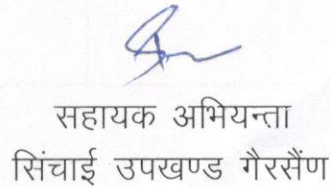 सहायक अभियन्ता
सिंचाई उपखण्ड गैरसैंण